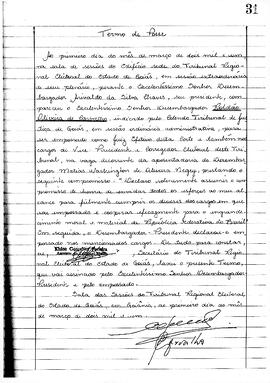 31
Termo de Posse
Ao primeiro dia do mês de março de dois mil e um,
na sala de sessões do Edifício sede do Tribunal Regio-
nal Eleitoral do Estado de Goiás, em sessão extraordinária
de seu plenário, perante o Excelentíssimo Senhor Desem-
bargador Arivaldo da Silva Chaves, seu presidente, com-
pareceu o Excelentíssimo Senhor Desembargador Roldão
Oliveira de Carvalho, indicado pelo Colendo Tribunal de Jus-
tiça de Goiás, em sessão ordinária administrativa, para
ser empossado como Juiz Efetivo desta Corte e também nos
cargos de Vice-Presidente e Corregedor Eleitoral deste Tri-
bunal, na vaga decorrente da aposentadoria do Desembar-
gador Matias Washington de Oliveira Negry, prestando o
seguinte compromisso: "Declaro solenemente assumir o com-
promisso de honra de envidar todos os esforços ao meu al-
cance para fielmente cumprir os deveres do cargo em que
sou empossado e cooperar eficazmente para o engrande-
cimento moral e material da República Federativa do Brasil".
Em seguida, o Desembargador-Presidente declarou-o em-
possado nos mencionados cargos. Do que, para constar,
eu, Secretário do Tribunal Regio-
nal Eleitoral do Estado de Goiás, lavrei o presente Termo,
que vai assinado pelo Excelentíssimo Senhor Desembargador
Presidente e pelo empossado.
Sala das Sessões do Tribunal Regional Eleitoral
do Estado de Goiás, em Goiânia, ao primeiro dia do
mês de março de dois mil e um.